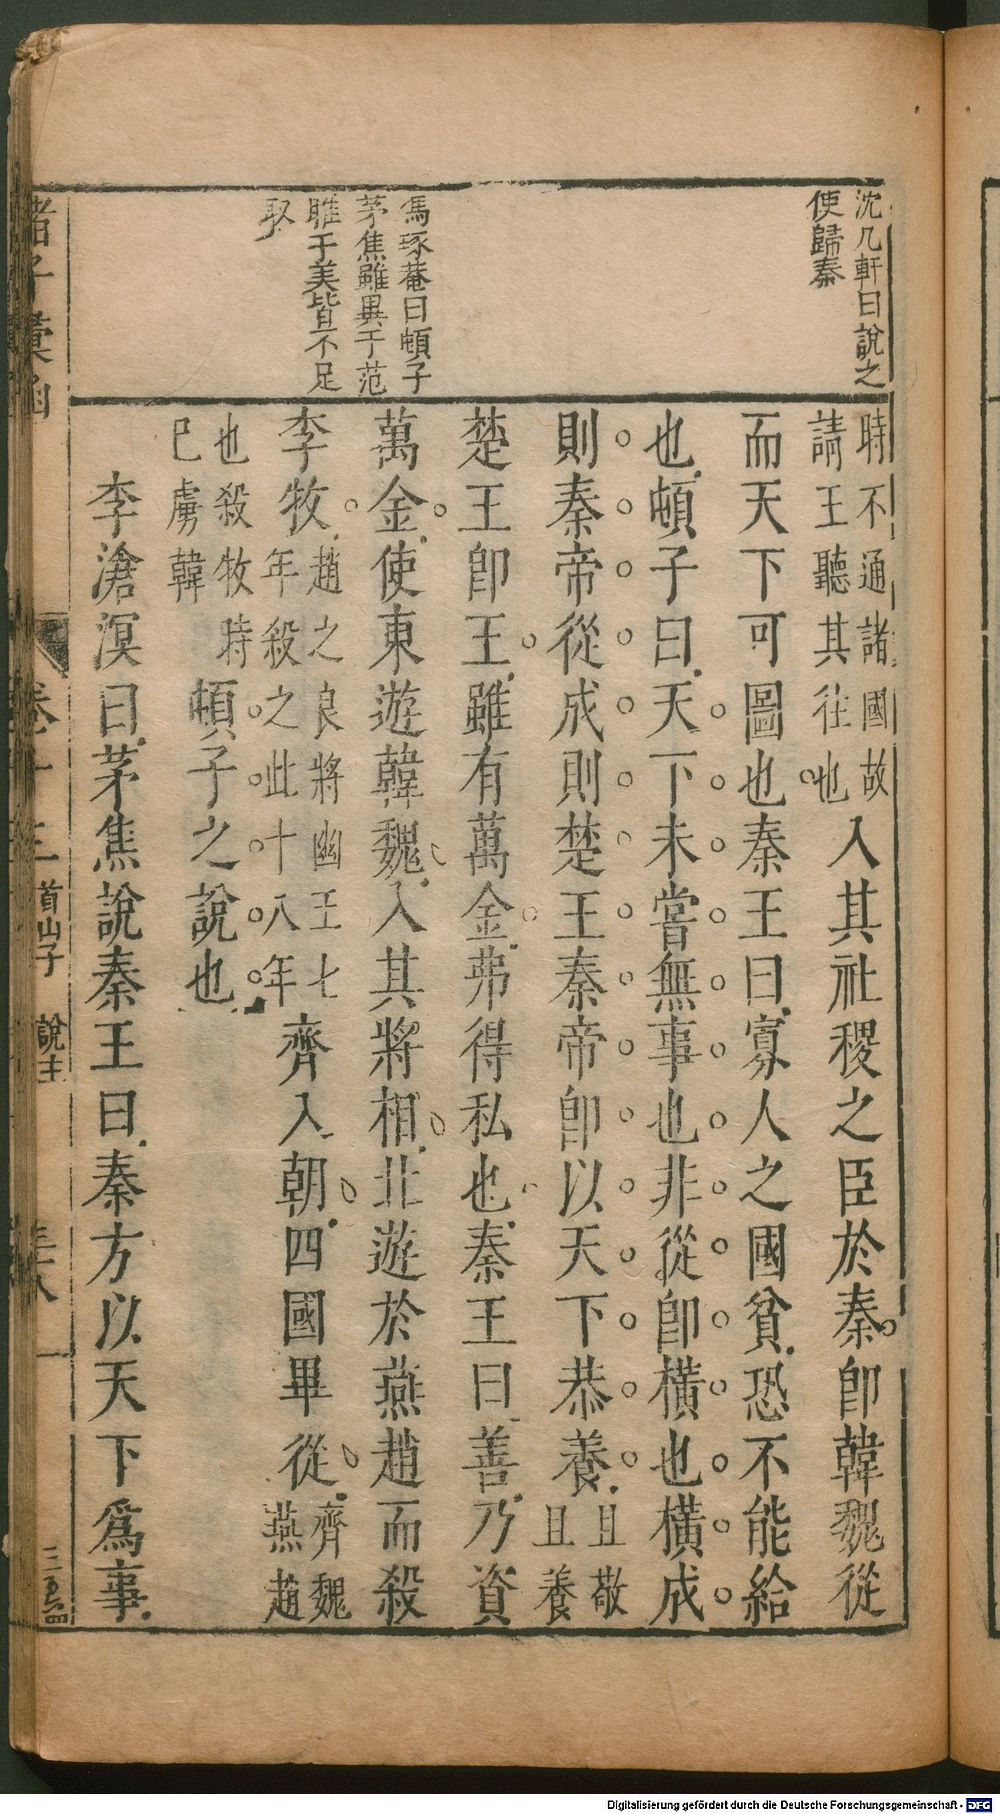 沈几軒曰說之
使歸秦
馮琢菴曰頓子
茅焦雖異于范
睢于美皆不足
取
時不通諸國故
請王聽其往也
入其社稷之臣於秦卽韓魏從
而天下可圖也秦王曰寡人之國貧恐不能給
也頓子曰天下未嘗無事也非從卽橫也橫成
則秦帝從成則楚王秦帝卽以天下恭養
且敬
且養
楚王卽王雖有萬金弗得私也秦王曰善乃資
萬金使東遊韓魏入其將相北遊於燕趙而殺
李牧
趙之良將幽王七
年殺之此十八年
齊入朝四國畢從
齊魏
燕趙
也殺牧時
已虜韓
頓子之說也
李滄溟曰茅焦說秦王曰秦方以天下爲事
諸子彙函
卷十三
首山子
說主
Digitalisierung gefördert durch die Deutsche Forschungsgemeinschaft - DFG